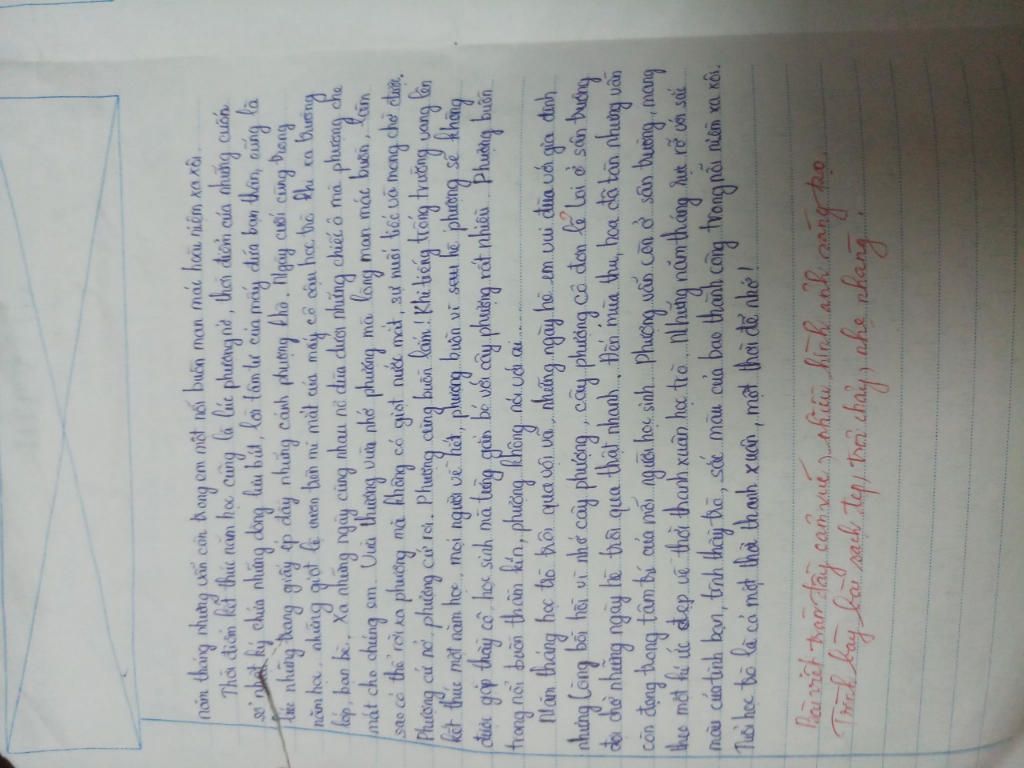 năm tháng nhưng vẫn còn trong em một nỗi buồn man mác hoài niệm xa xôi.
Thời điểm kết thúc năm học cũng là lúc phượng nở, thời điểm của những cuốn
sổ nhật ký chứa những dòng lưu bút, lời tâm tư của mấy đứa bạn thân, cũng là
lúc những trang giấy ép đầy những cánh phượng khô. Ngày cuối cùng trong
năm học, những giọt lệ vươn trên mi mắt của mấy cô cậu học trò khi xa trường
lớp, bạn bè. Xa những ngày cùng nhau nô đùa dưới những chiếc ô mà phượng che
mát cho chúng em. Vừa thương vừa nhớ phượng mà lòng man mác buồn, làm
sao có thể rời xa phượng mà không có giọt nước mắt, sự nuối tiếc và mong chờ được.
Phượng cứ nở, phượng cứ rơi. Phượng cũng buồn lắm! Khi tiếng trống trường vang lên
kết thúc một năm học, mọi người về hết, phượng buồn vì sau hè phượng sẽ không
được gặp thầy cô, học sinh mà từng gắn bó với cây phượng rất nhiều. Phượng buồn
trong nỗi buồn thầm kín, phượng không nói với ai.
Năm tháng học trò trôi qua vội vã, những ngày hè em vui đùa với gia đình
nhưng lòng bồi hồi vì nhớ cây phượng, cây phượng cô đơn lẻ loi ở sân trường
đợi chờ những ngày hè trôi qua thật nhanh. Đến mùa thu, hoa đã tàn nhưng vẫn
còn đọng trong tâm trí của mỗi người học sinh. Phượng vẫn còn ở sân trường, mang
theo một kí ức đẹp về thời thanh xuân học trò. Những năm tháng rực rỡ với sắc
màu của tình bạn, tình thầy trò, sắc màu của bao thành công trong nỗi niềm xa xôi.
Tuổi học trò là cả một thời thanh xuân, một thời để nhớ!
Bài viết tràn đầy cảm xúc, nhiều hình ảnh sáng tạo.
Trình bày bài sạch đẹp, trôi chảy, nhẹ nhàng.